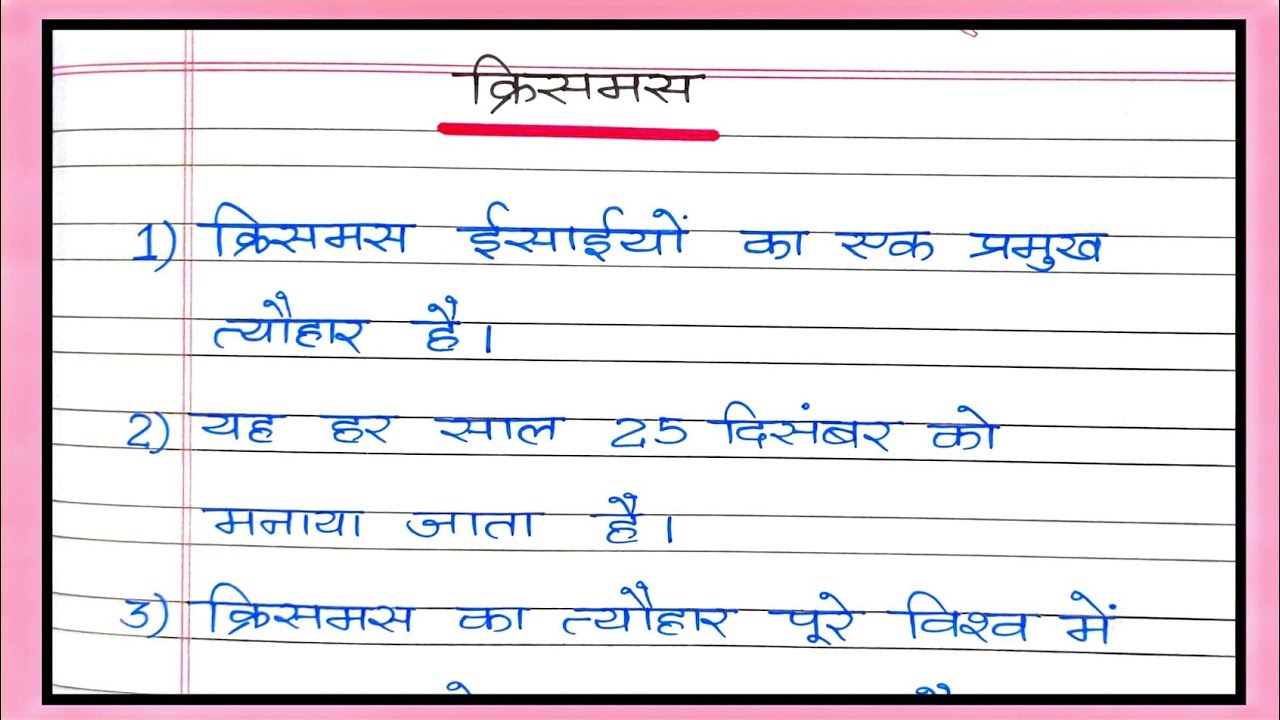 क्रिसमस
1) क्रिसमस ईसाईयों का एक प्रमुख
त्यौहार है।
2) यह हर साल 25 दिसंबर को
मनाया जाता है।
3) क्रिसमस का त्यौहार पूरे विश्व में